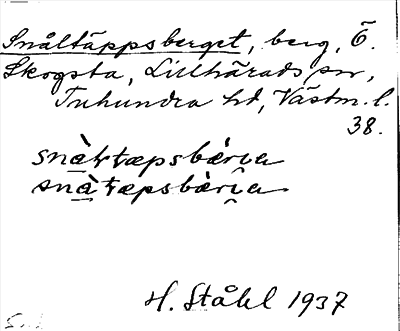 Snåltäppsberget, berg, Ö.
Skogsta, Lillhärads sn,
Tuhundra hd, Västm. l.
38.
snàltæpsbæ̀ri̯a
snàtæpsbæ̀ri̯a
H. Ståhl 1937